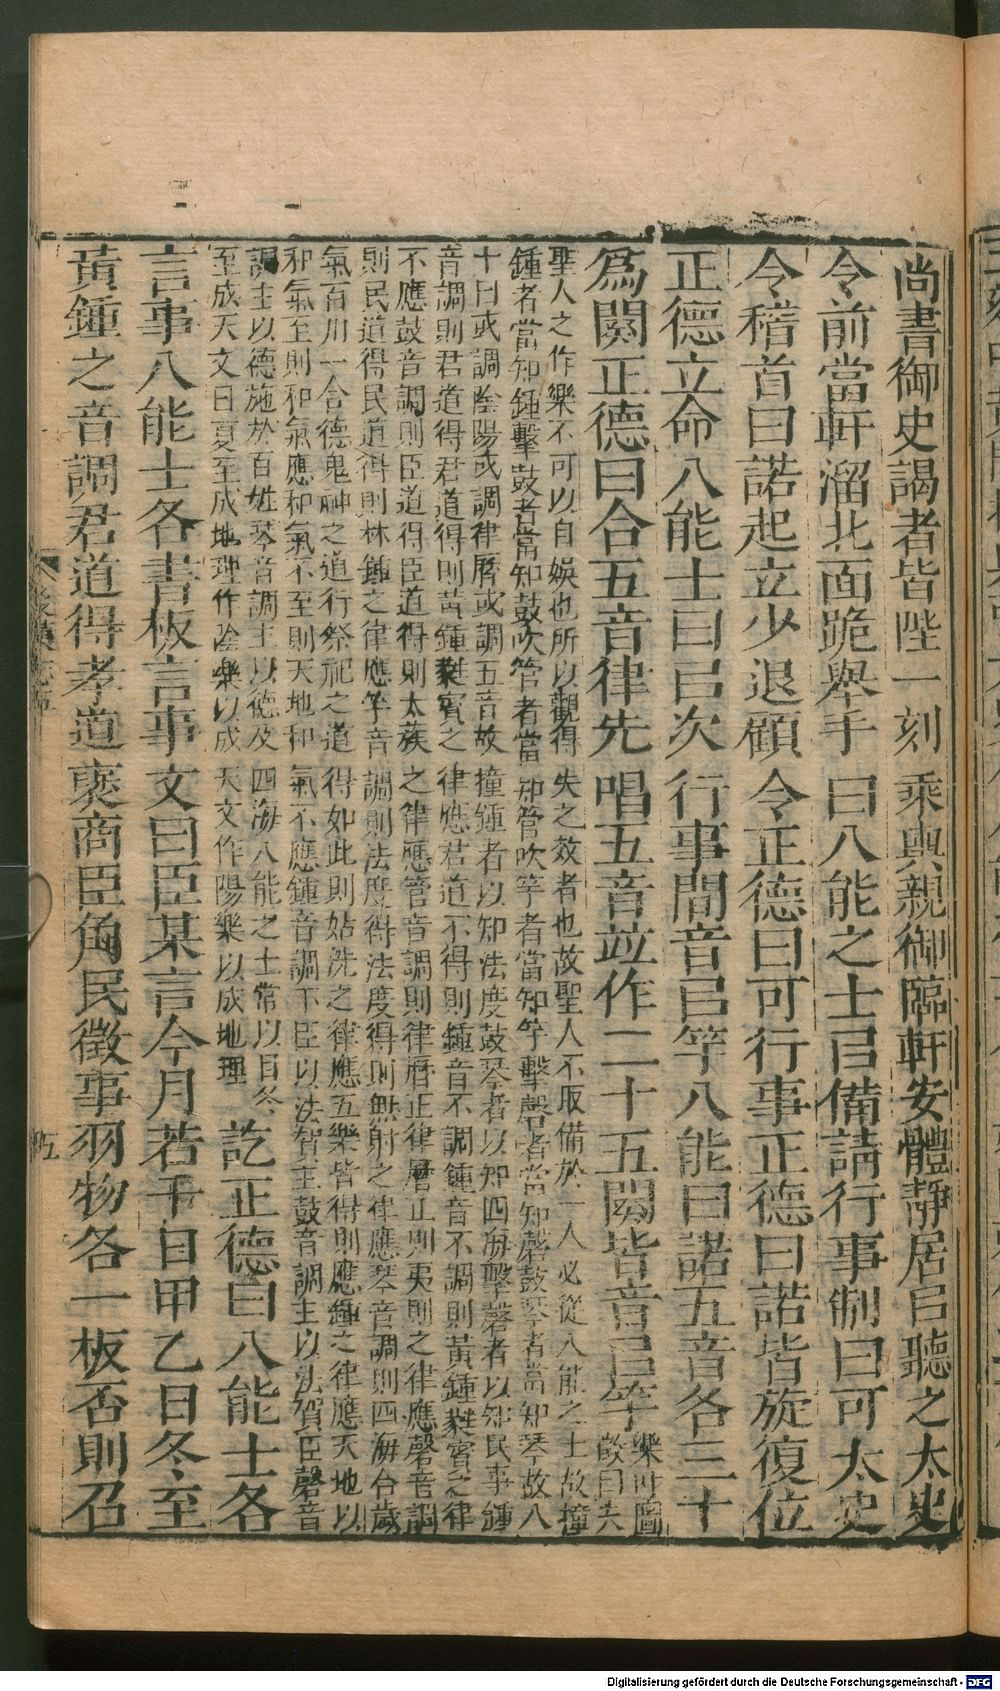 尚書御史謁者皆陛一刻乘輿親御臨軒安體靜居㠯聽之太史
令前當軒溜北面跪舉手曰八能之士㠯備請行事制曰可太史
令稽首曰諾起立少退顧令正德曰可行事正德曰諾皆旋復位
正德立命八能士曰㠯次行事間音㠯竽八能曰諾五音各三十
為闋正德曰合五音律先唱五音竝作二十五闋皆音㠯竽樂叶圖徵曰夫
聖人之作樂不可以自娛也所以觀得失之效者也故聖人不取備於一人必從八能之士故撞
鍾者當知鍾擊鼓者當知鼓吹管者當知管吹竽者當知竽擊磬者當知磬鼓琴者當知琴故八
士曰或調陰陽或調律曆或調五音故撞鍾者以知法度鼓琴者以知四海擊磬者以知民事鍾
音調則君道得君道得則黃鍾蕤賓之律應君道不得則鍾音不調鍾音不調則黃鍾蕤賓之律
不應鼓音調則臣道得臣道得則太蔟之律應管音調則律曆正律曆正則夷則之律應磬音調
則民道得民道得則林鍾之律應竽音調則法度得法度得則無射之律應琴音調則四海合歲
氣百川一合德鬼神之道行祭祀之道得如此則姑洗之律應五樂皆得則應鍾之律應天地以
和氣至則和氣應和氣不至則天地和氣不應鍾音調下臣以法賀主鼓音調主以法賀臣磬音
調主以德施於百姓琴音調主以德及四海八能之士常以日冬
至成天文日夏至成地理作陰樂以成天文作陽樂以成地理
訖正德曰八能士各
言事八能士各書板言事文曰臣某言今月若干日甲乙日冬至
黃鍾之音調君道得孝道襃商臣角民徵事羽物各一板否則召
Digitalisierung gefördert durch die Deutsche Forschungsgemeinschaft - DFG